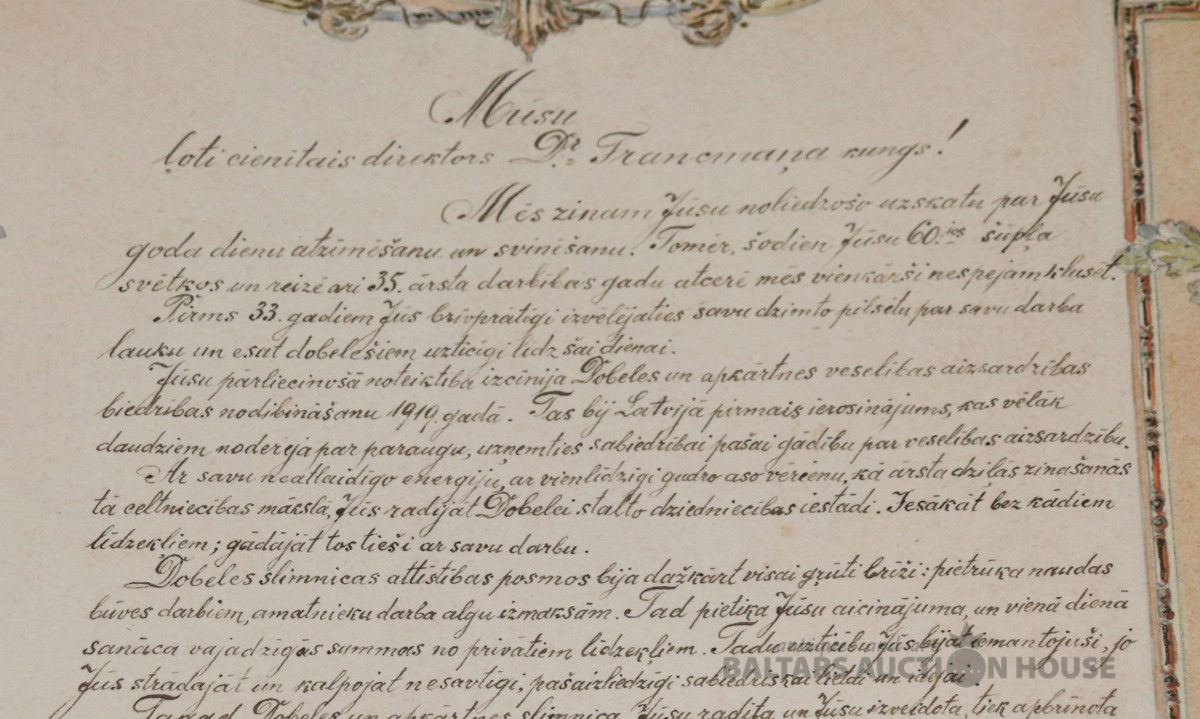 Mūsu
ļoti cienītais direktors Dr. Francmaņa kungs!
Mēs zinam Jūsu noliedzošo uzskatu par Jūsu
goda dienu atzīmēšanu un svinēšanu. Tomēr, šodien Jūsu 60.ios šūpļa
svētkos un reizē arī 35. ārsta darbības gadu atcerē mēs vienkārši nespējam klusēt.
Pirms 33. gadiem Jūs brīvprātīgi izvēlējaties savu dzimto pilsētu par savu darba
lauku un esat dobelešiem uzticīgi līdz šai dienai.
Jūsu pārliecinošā noteiktība izcīnīja Dobeles un apkārtnes veselības aizsardzības
biedrības nodibināšanu 1919. gadā. Tas bij Latvijā pirmais ierosinājums, kas vēlāk
daudziem noderēja par paraugu, uzņemties sabiedrībai pašai gādību par veselības aizsardzību.
Ar savu neatlaidīgo enerģiju, ar vienlīdzīgi gudro aso vērienu, kā ārsta dziļās zināšanās
tā celtniecības mākslā, Jūs radījāt Dobelei stalto dziedniecības iestādi. Iesākāt bez kādiem
līdzekļiem; gādājāt tos tieši ar savu darbu.
Dobeles slimnīcas attīstības posmos bija dažkārt visai grūti brīži: pietrūka naudas
būves darbiem, amatnieku darba algu izmaksām. Tad pietika Jūsu aicinājuma, un vienā dienā
sanāca vajadzīgās summas no privātiem līdzekļiem. Tādu uzticību Jūs bijāt iemantojuši, jo
Jūs strādājāt un kalpojāt nesavtīgi, pašaizliedzīgi sabiedriskai lietai un idejai.
Tagad Dobeles un apkārtnes slimnīca, Jūsu radīta un Jūsu izveidota, tiek apbrīnota
BALTARS AUCTION HOUSE